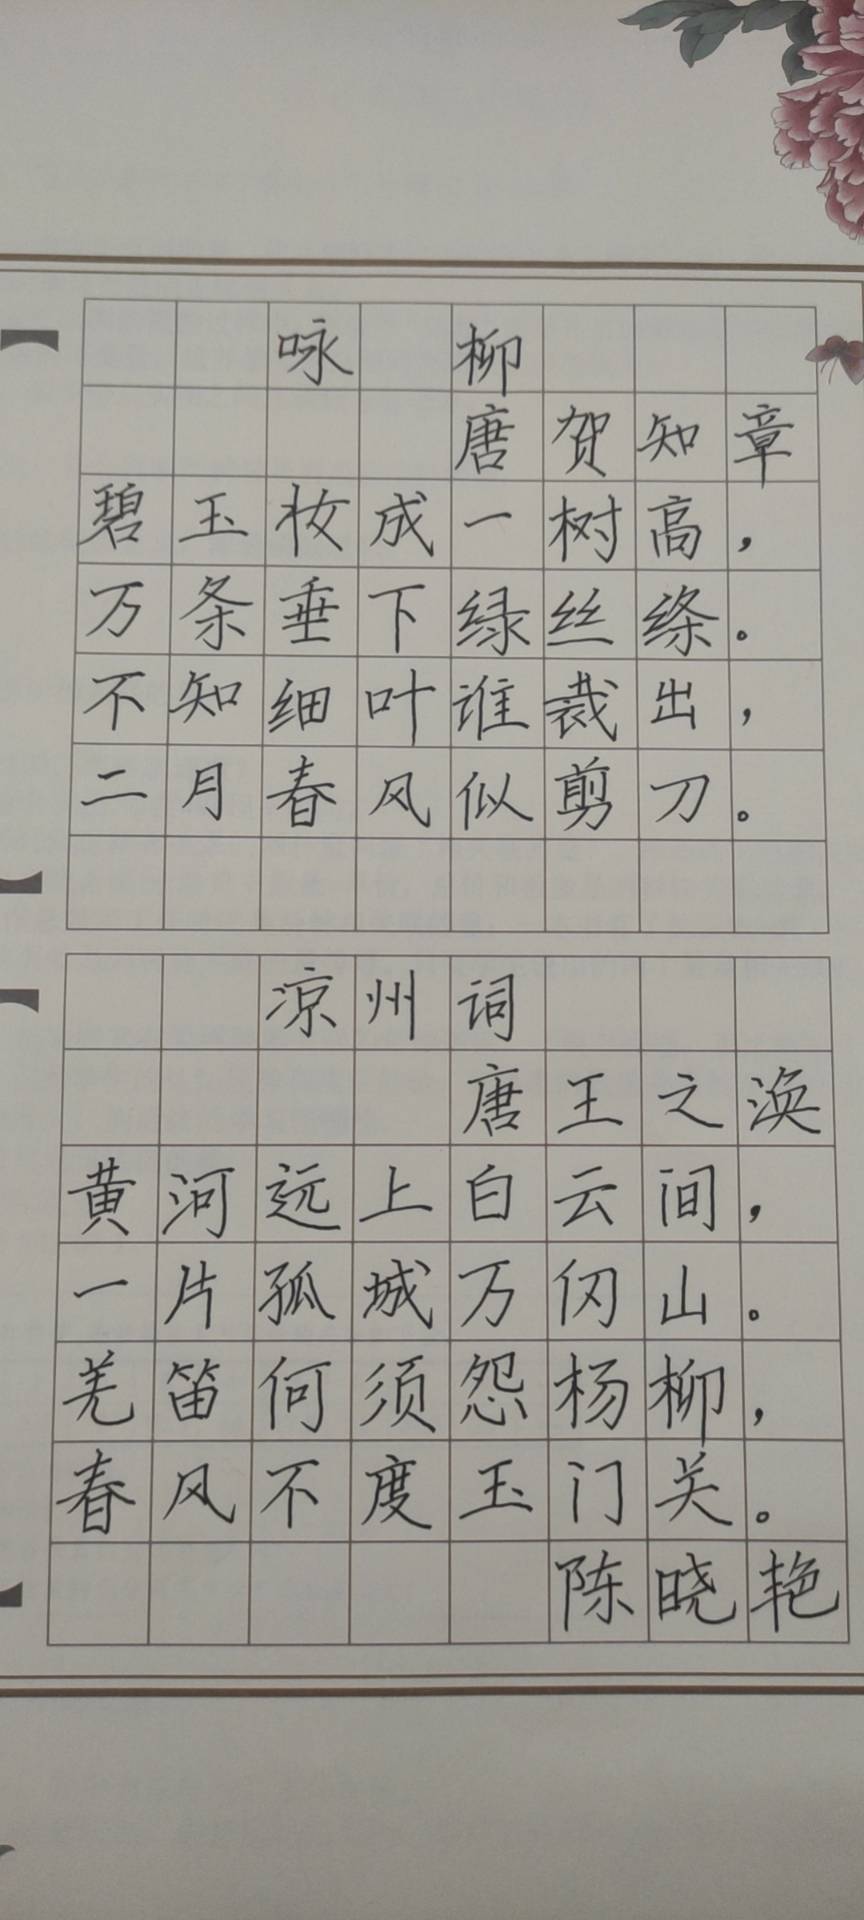 咏柳
唐贺知章
碧玉妆成一树高，
万条垂下绿丝绦。
不知细叶谁裁出，
二月春风似剪刀。
凉州词
唐王之涣
黄河远上白云间，
一片孤城万仞山。
羌笛何须怨杨柳，
春风不度玉门关。
陈晓艳